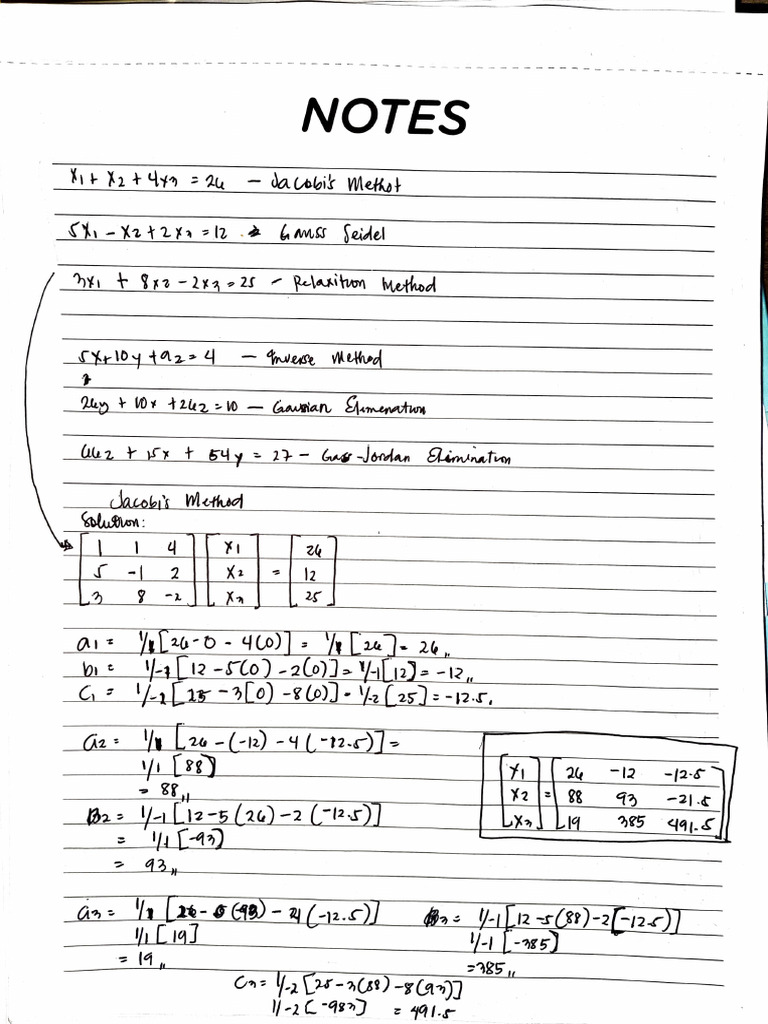 NOTES
x1 + x2 + 4x3 = 26 — Jacobi's Methot
5x1 - x2 + 2x3 = 12 Gauss Seidel
3x1 + 8x2 - 2x3 = 25 - Relaxition Method
5x+10y + 9z = 4 — Inverse Method
26y + 10x + 26z = 10 — Gaussian Elimenation
z + 15x + 54y = 27 - Gass-Jordan Elimination
Jacobi's Method
Solution:
[1 1 4] [x1] [26]
[5 -1 2] [x2] = [12]
[3 8 -2] [x3] [25]
a1 = 1/1 [26-0 - 4(0)] = 1/1 [26] = 26,,
b1 = 1/-1 [12 - 5(0) - 2(0)] = 1/-1 [12] = -12,,
C1 = 1/-2 [25 - 3[0) - 8(0)] = 1/-2 [25] = -12.5,
a2 = 1/1 [26 - (-12) - 4(-12.5)] =
1/1 [88]
= 88,,
B2 = 1/-1 [12-5(26) - 2(-12.5)]
= 1/1 [-93)
= 93,,
[x1] [26 -12 -12.5]
[x2] = [88 93 -21.5]
[x3] [19 385 491.5]
a3 = 1/1 [26 - (93) - 4(-12.5)]
1/1 [19]
= 19,,
3 = 1/-1 [12 - 5(88) - 2[-12.5)]
1/-1 [-385]
=385,,
C3 = 1/-2 [25 - 3(88) - 8(93)]
1/-2 [-983] = 491.5